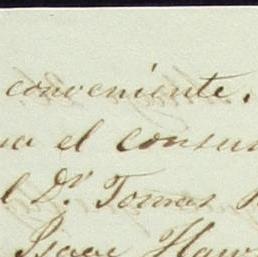 conveniente.
el consu
Dr. Tomas
Isaac Haw